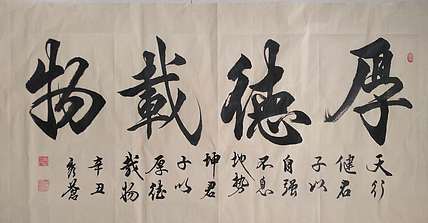 厚德載物
天行
健君
子以
自强
不息
地势
坤君
子以
厚德
載物
辛丑